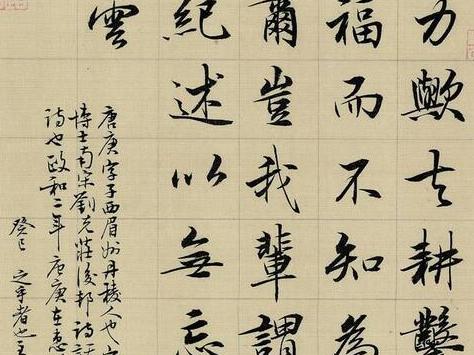 力歟夫耕鑿
福而不知為
爾豈我輩謂
紀述以無忘
雲
唐庚字子西眉州丹稜人也
博士南宋劉克莊後邨詩話
詩也政和二年唐庚在惠
癸巳 之乎者也